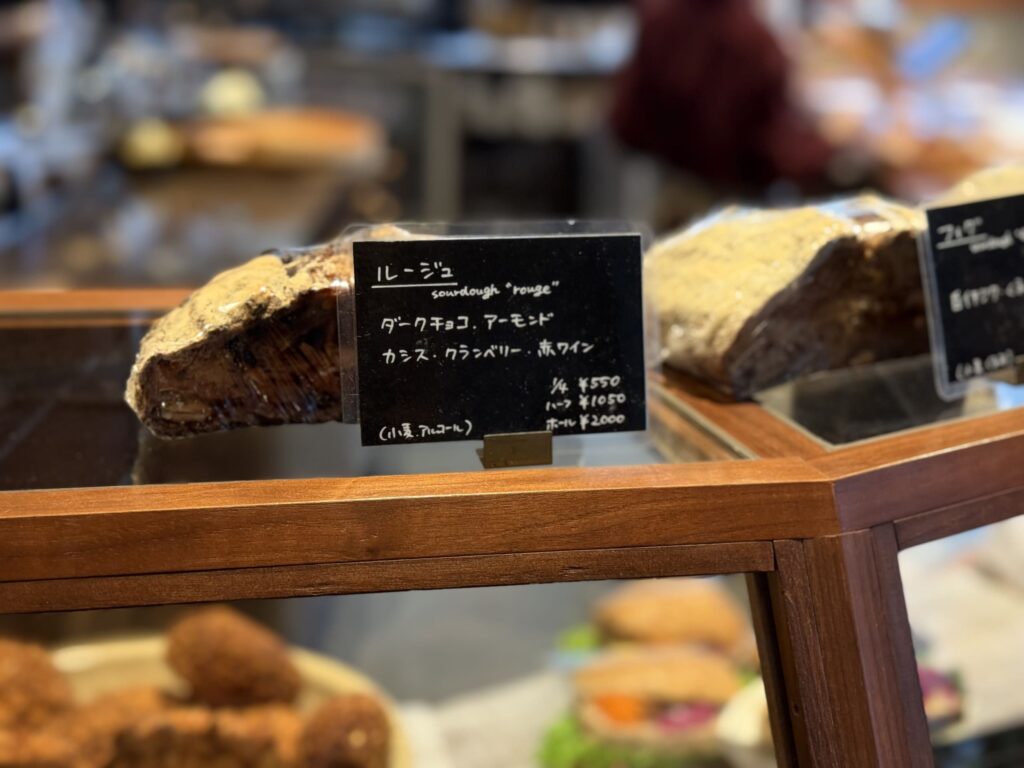 ルージュ
sourdough "rouge"
ダークチョコ．アーモンド
カシス・クランベリー・赤ワイン
1/4 ¥550
ハーフ ¥1050
ホール ¥2000
(小麦．アルコール)